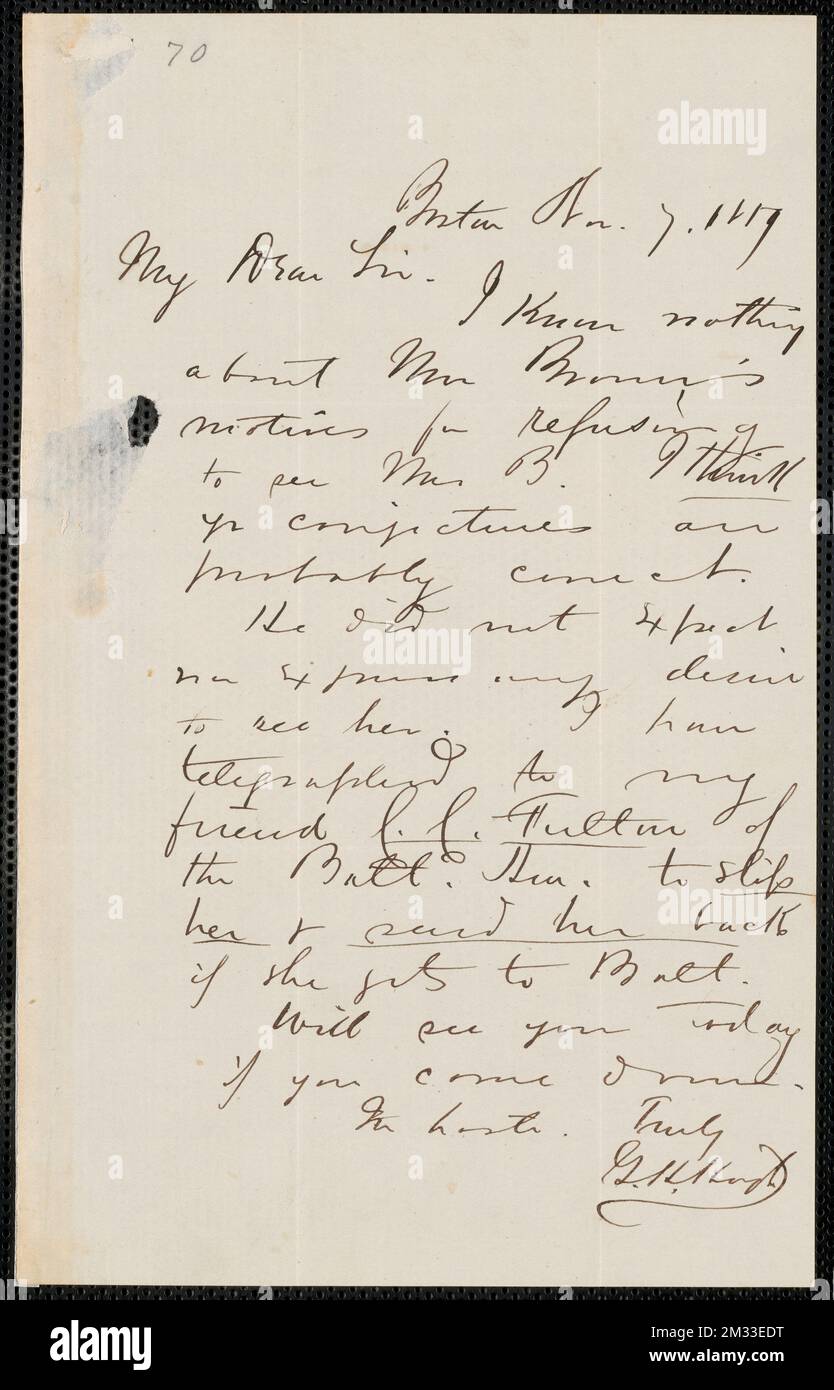 70
Boston Nov. 7. 1859
My Dear Sir.
I know nothing
about Mr Brown's
motives for refusing
to see Mrs B. I think
yr conjectures are
probably correct.
He did not expect
nor express any desire
to see her. I have
telegraphed to my
friend C. C. Fulton of
the Balt. Am. to stop
her & send her back
if she gets to Balt.
Will see you today
if you come down.
In haste. Truly
G. H. Hoyt
alamy
alamy
alamy
Image ID: 2M33EDT
www.alamy.com